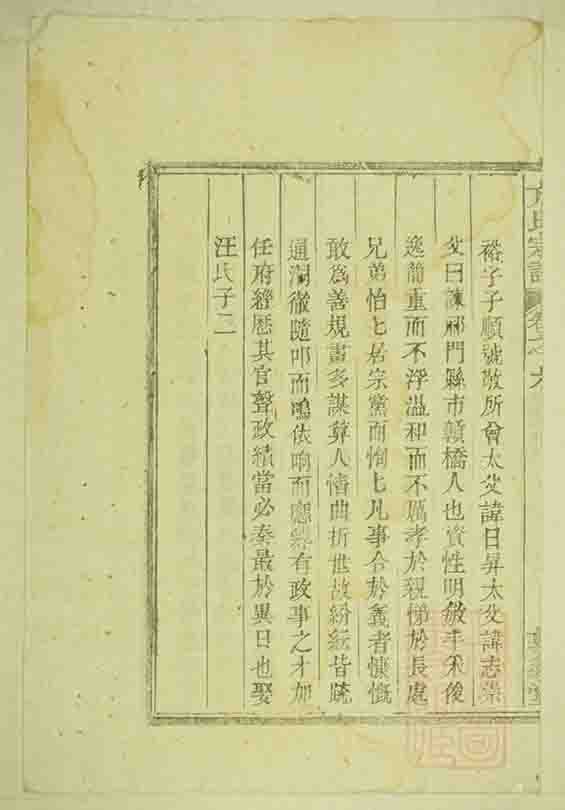 方氏宗譜 卷之六
裕字子順號敬所曾太父諱日昇太父諱志崇
父曰諫祁門縣市韻橋人也資性明敏丰采俊
逸簡重而不浮溫和而不厲孝於親悌於長處
兄弟怡匕居宗黨而恂匕凡事合於義者慷慨
敢為善規畫多謀算人情曲折世故紛紜皆疏
通洞徹隨叩而鳴依响而應綽有政事之才加
任府經歷其官聲政績當必奏最於異日也娶
汪氏子二